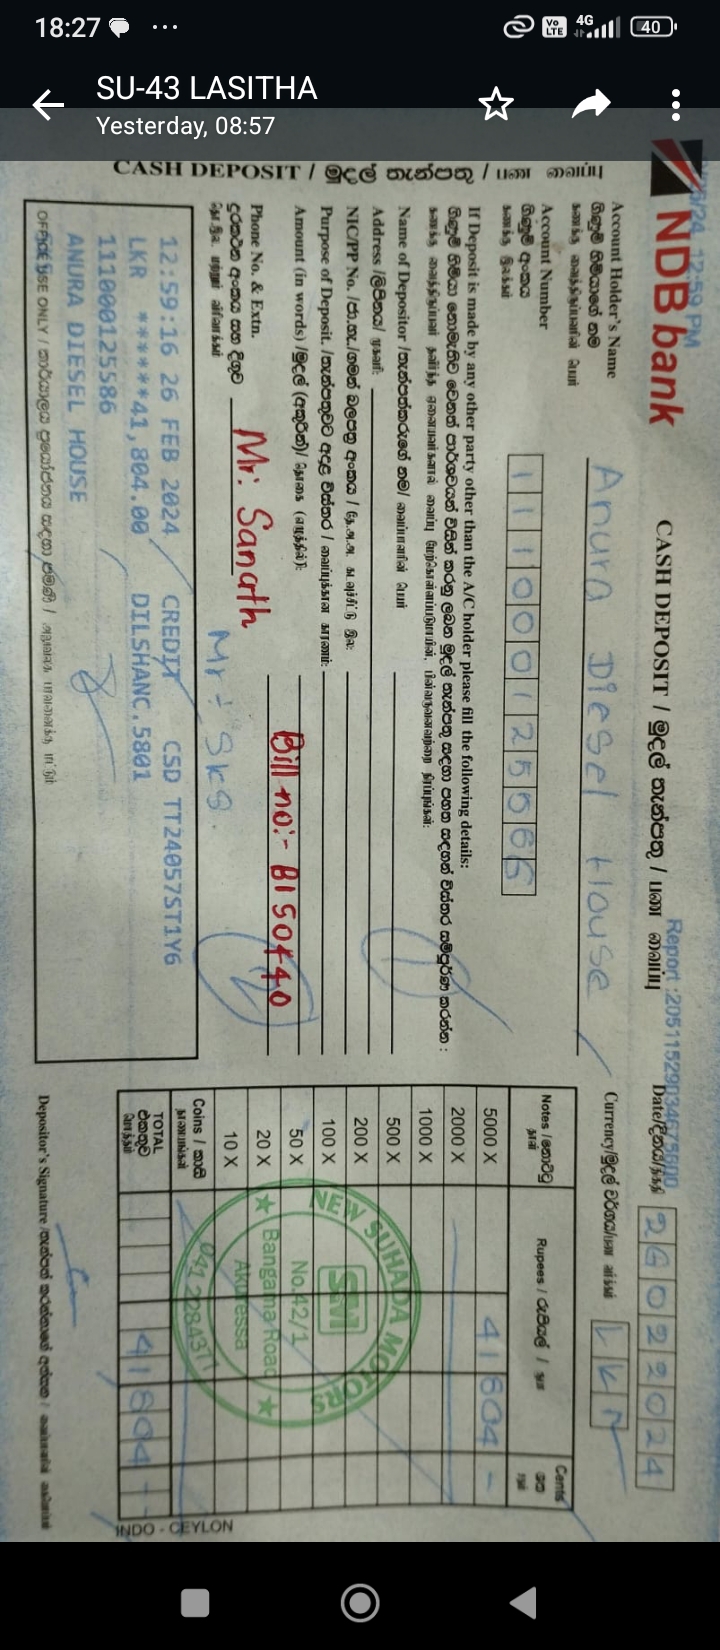 18:27
Vo LTE 4G 40
SU-43 LASITHA
Yesterday, 08:57
12:59 PM
NDB bank
CASH DEPOSIT / මුදල් තැන්පතු / பண வைப்பு
CASH DEPOSIT / මුදල් තැන්පතු / பண வைப்பு
Report :20511529034675600
Date/දිනය/திகதி 26022024
Account Holder's Name
ගිණුම් හිමියාගේ නම
கணக்கு வைத்திருப்பவரின் பெயர்
Anura Diesel House
Currency/මුදල් වර්ගය/பண வர்க்கம் LKR
Account Number
ගිණුම් අංකය
கணக்கு இலக்கம்
If Deposit is made by any other party other than the A/C holder please fill the following details:
ගිණුම් හිමියා නොමැතිව වෙනත් පාර්ශවයක් විසින් කරනු ලබන මුදල් තැන්පතු සඳහා පහත සඳහන් විස්තර සම්පූර්ණ කරන්න :
Name of Depositor /තැන්පත්කරුගේ නම/ வைப்பாளரின் பெயர்
Address /ලිපිනය/ முகவரி:
NIC/PP No. /ජා.හැ./ගමන් බලපත්‍ර අංකය /
Purpose of Deposit. /තැන්පතුවට අදාළ විස්තර / வைப்புக்கான காரணம்:
Amount (in words) /මුදල් (අකුරින්)/ தொகை (எழுத்தில்):
Bill no:- B150440
Phone No. & Extn.
දුරකථන අංකය සහ දිගුව
Mr: Sanath
12:59:16 26 FEB 2024 CREDIT CSD TT24057ST1Y6
LKR ******41,804.00 DILSHANC.5801
111000125586
ANURA DIESEL HOUSE
OFFICE USE ONLY / කාර්යාලයීය ප්‍රයෝජනය සඳහා පමණි /
Notes /නෝට්ටු Rupees / රුපියල් / ரூபா Cents ශත சதம்
5000 X 41804 -
2000 X
1000 X
500 X
200 X
100 X
50 X
20 X
10 X
Coins / කාසි
TOTAL
එකතුව
41804 -
NEW SUHADA MOTORS
SM
No.42/1
Bangama Road
Akuressa
041 2284311
Depositor's Signature /
INDO - CEYLON